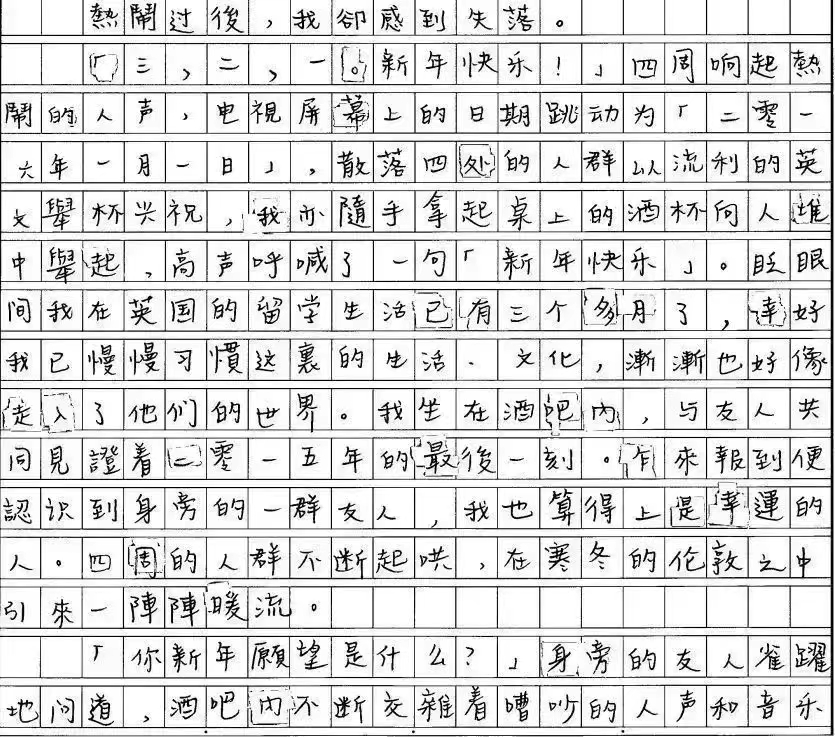 熱鬧过後，我卻感到失落。
「三，二，一。新年快乐！」四周响起熱
鬧的人声，电視屏幕上的日期跳动为「二零一
六年一月一日」，散落四处的人群以流利的英
文舉杯兴祝，我亦隨手拿起桌上的酒杯向人堆
中舉起，高声呼喊了一句「新年快乐」。眨眼
间我在英国的留学生活已有三个多月了，幸好
我已慢慢习慣这裏的生活、文化，漸漸也好像
走入了他们的世界。我坐在酒吧內，与友人共
同見證着二零一五年的最後一刻。乍來報到便
認识到身旁的一群友人，我也算得上是幸運的
人。四周的人群不断起哄，在寒冬的伦敦之中
引來一陣陣暖流。
「你新年願望是什么？」身旁的友人雀躍
地问道，酒吧內不断交雜着嘈吵的人声和音乐